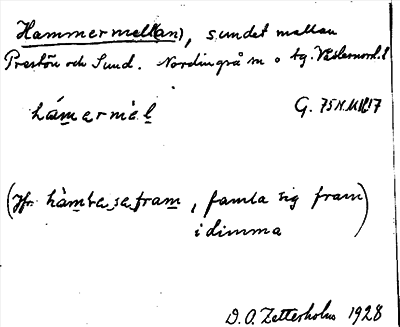 Hammermellan), sundet mellan
Prestön och Sund. Nordingrå sn o tg. Västernorrl. l
hámermèl G. 75
(Jfr hàmra sa fram, famla sig fram)
i dimma
D. O. Zetterholm 1928